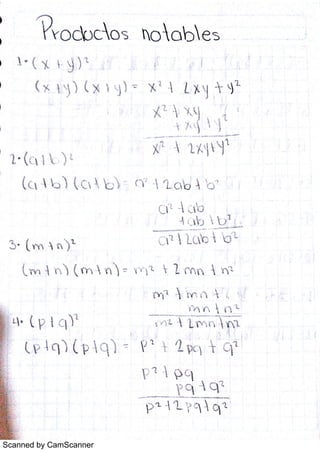 Productos notables
1. (x + y)²
(x + y) (x + y) = x² + 2xy + y²
x² + xy
+ xy + y²
x² + 2xy + y²
2. (a + b)²
(a + b) (a + b) = a² + 2ab + b²
a² + ab
+ ab + b²
a² + 2ab + b²
3. (m + n)²
(m + n) (m + n) = m² + 2mn + n²
m² + mn +
mn + n²
m² + 2mn + n²
4. (p + q)²
(p + q) (p + q) = p² + 2pq + q²
p² + pq
pq + q²
p² + 2pq + q²
Scanned by CamScanner